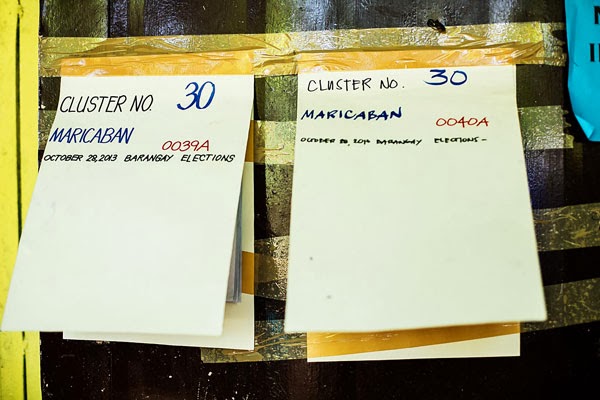 CLUSTER NO. 30
MARICABAN 0039A
OCTOBER 28, 2013 BARANGAY ELECTIONS
CLUSTER NO. 30
MARICABAN 0040A
OCTOBER BARANGAY ELECTIONS-